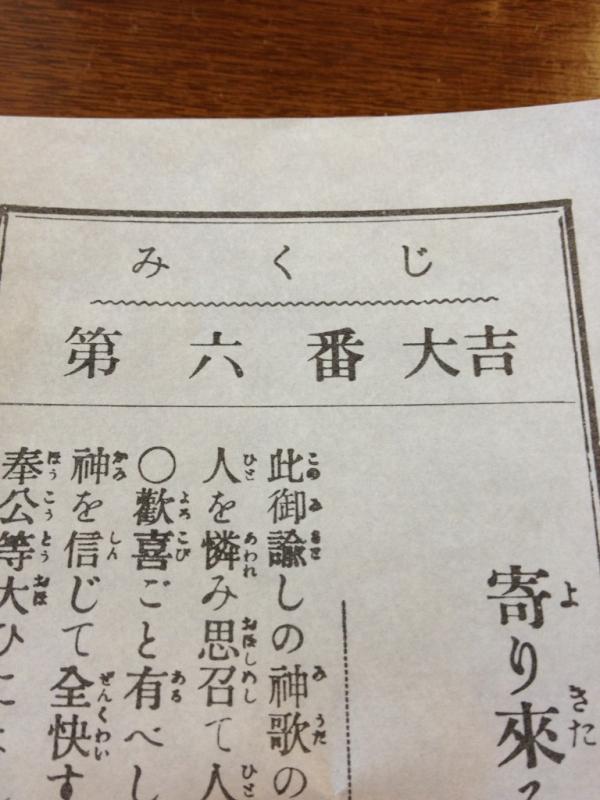 みくじ
第六番 大吉
寄り來
此御諭しの神歌の
人を憐み思召て人
○歡喜ごと有べし
神を信じて全快す
奉公等大ひによ